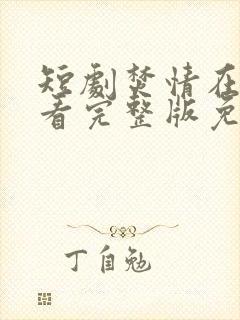 短劇焚情在
看完整版免
丁自勉